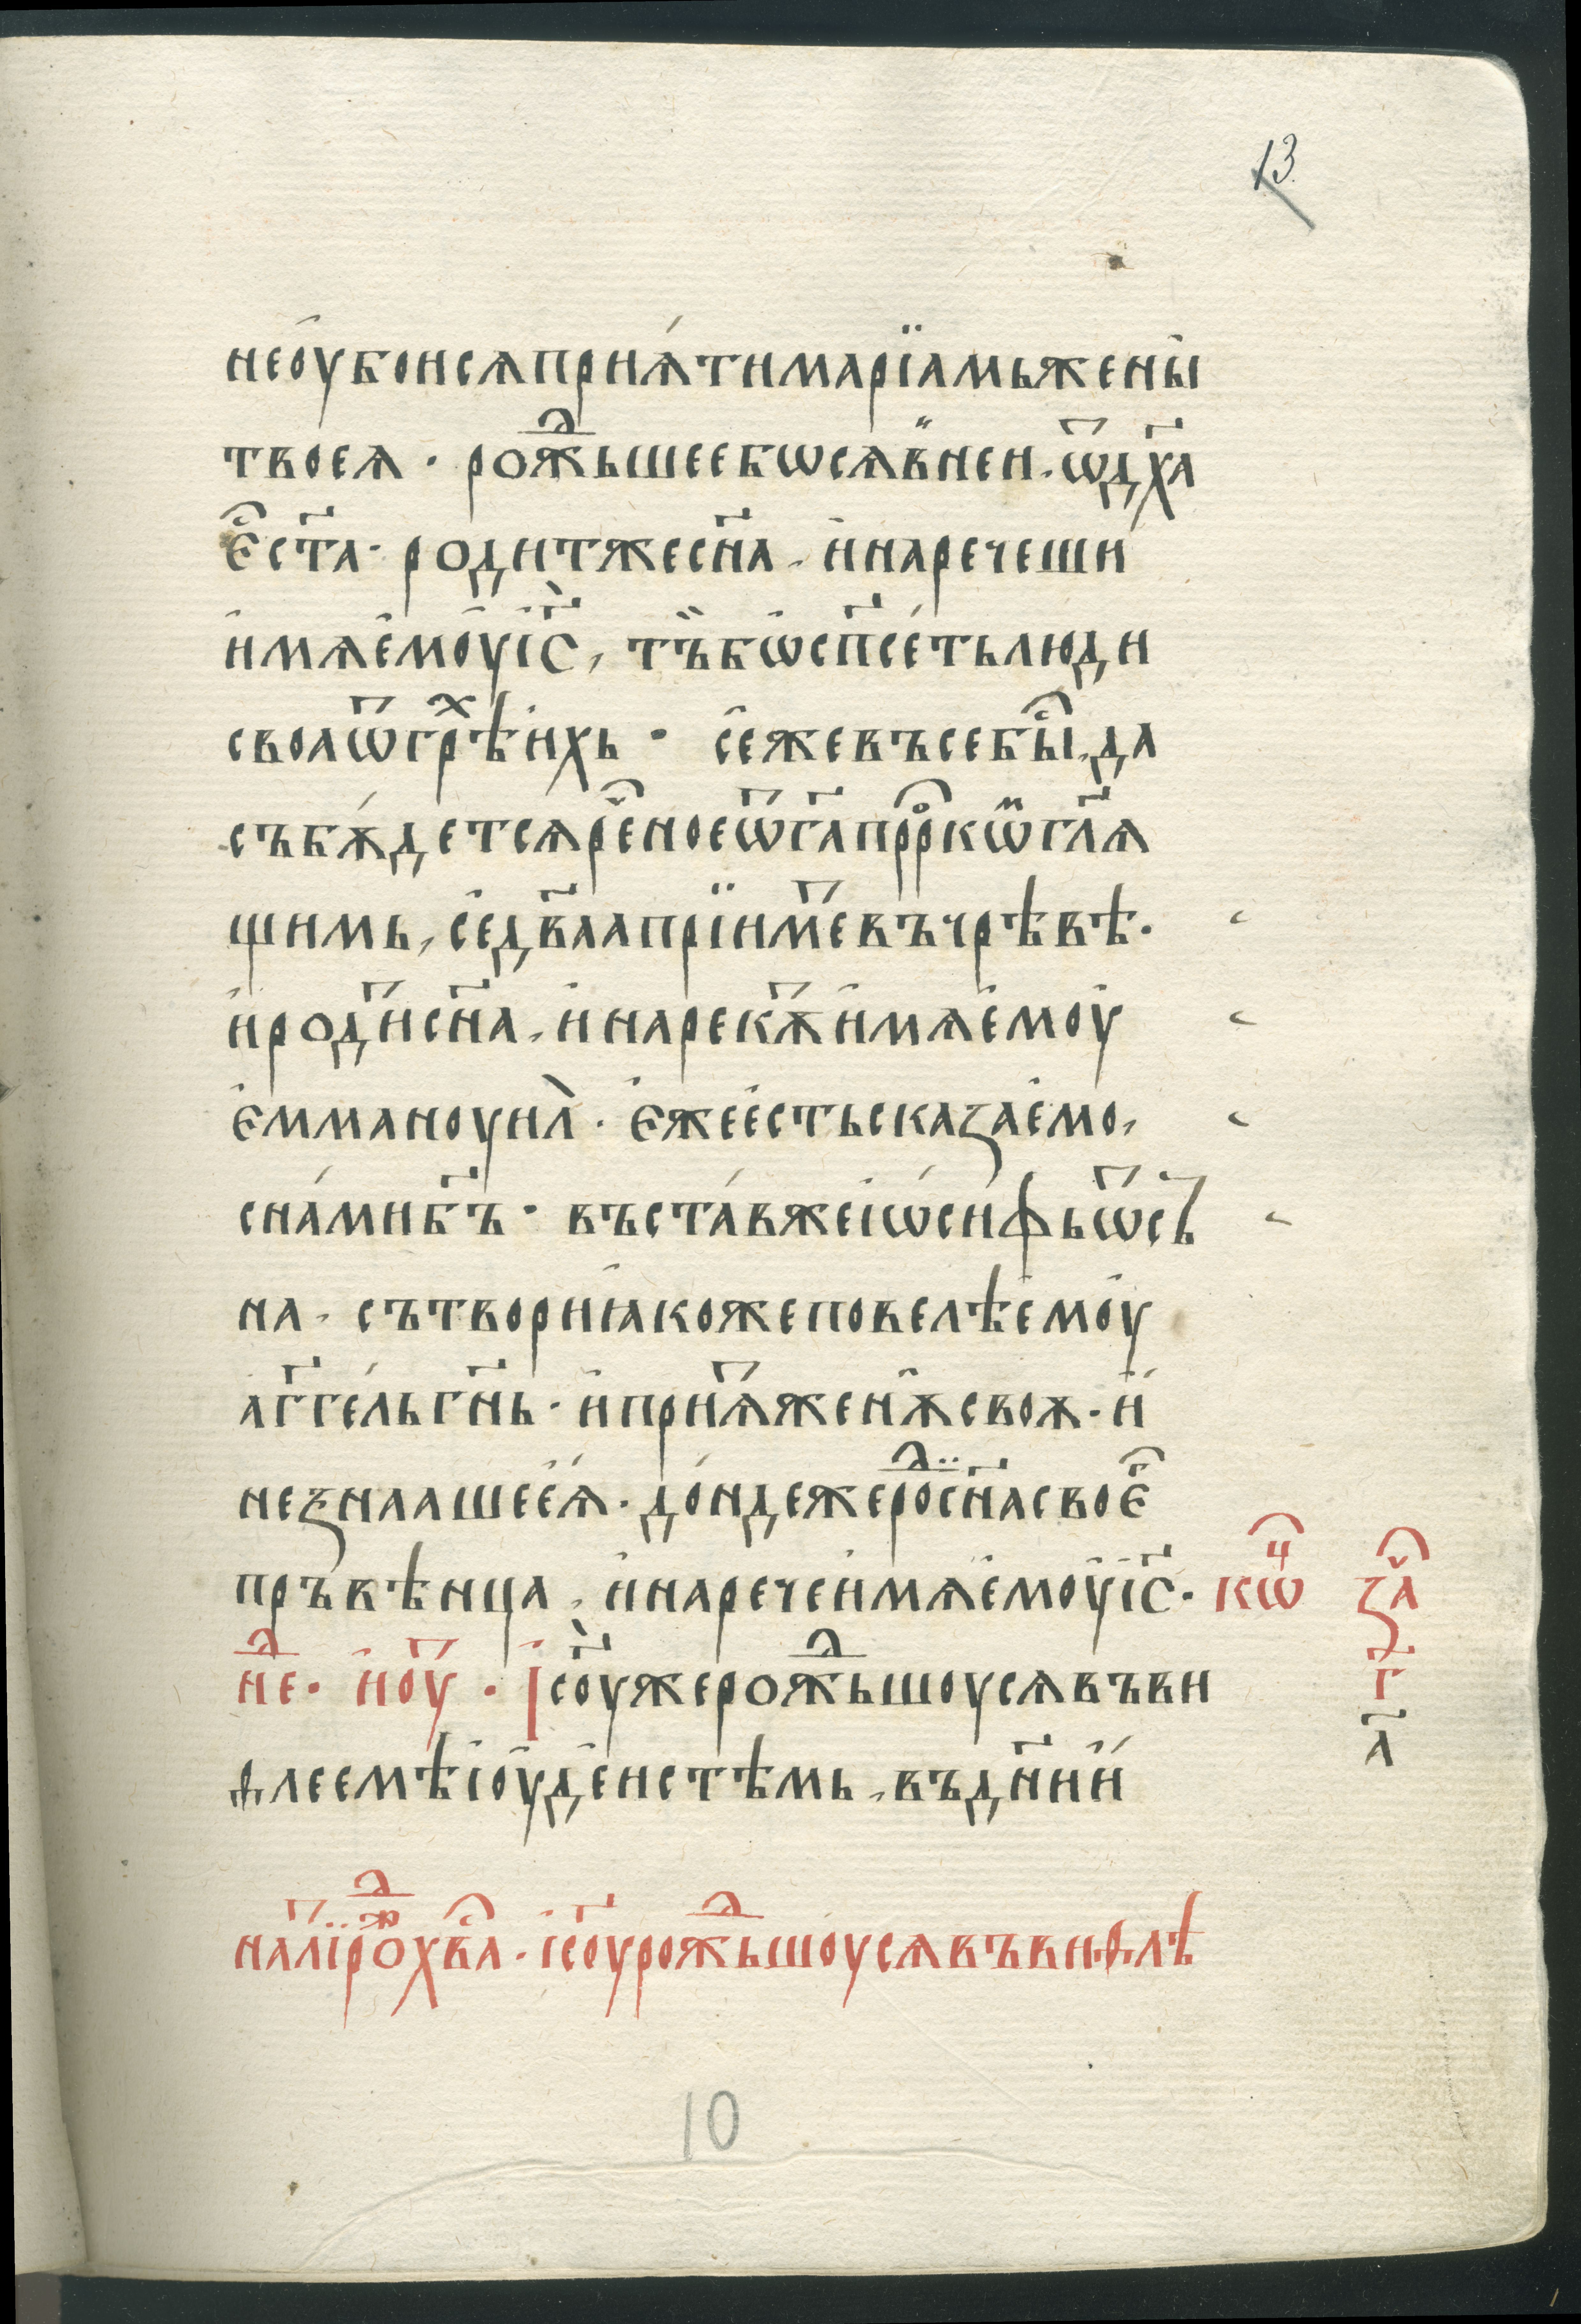 13
неоубоисѧприѧ́тимарїамьжены̀
твоеѧ · рождⷣьшеебѡсѧв̏ней · ѿдх҃а
е̑ст҃а · родитжесн҃а , и҆наречеши
и҆мѧе҆моу҆і҆с҃ , тъ̏бѡ҆сп҃се́тьлюди
своаѿгрⷯѣи҆хь · се҆жевъсебы̑ , да
събѫ́детсѧре̑ноеѿг҃апрр̑окѡ̈гл҃ѧ
щимь , се҆дв҃аапрїим҃евъчрѣвѣ ·
и҆роди҃сн҃а , и҆нарекѫ҃и҆мѧе҆моу҆
е҆ммануил̀ · е҆жее҆стьсказае҆мо ,
сна́мибг҃ъ · въста́вжеі҆ѡ҆си́фьѿсъ
на · сътвориꙗ҆кожеповелѣе҆моу҆
а҆гг҃е́льгн҃ь · и҆приѧ҃женѫ̑своѫ · и҆
неꙁнаашее҆ѧ́ · до́ндежеродⷣ̈сн҃асвое̑
пръвѣнца , и҆наречеи҆мѧе҆моу҆і҆с҃ · кѡ̑ⷰ
нⷣе · и҆ноу҃ · І҆с҃оужерождⷣьшоусѧвъви
ѳлеемѣі҆оу҆де҆йстѣмь , въдн҃иӥ
за̑
г҃
а҃
на л҃їрождⷣ҇хв̑а · і҆с҃оурождⷣьшоусѧвъвиѳлѣ
10